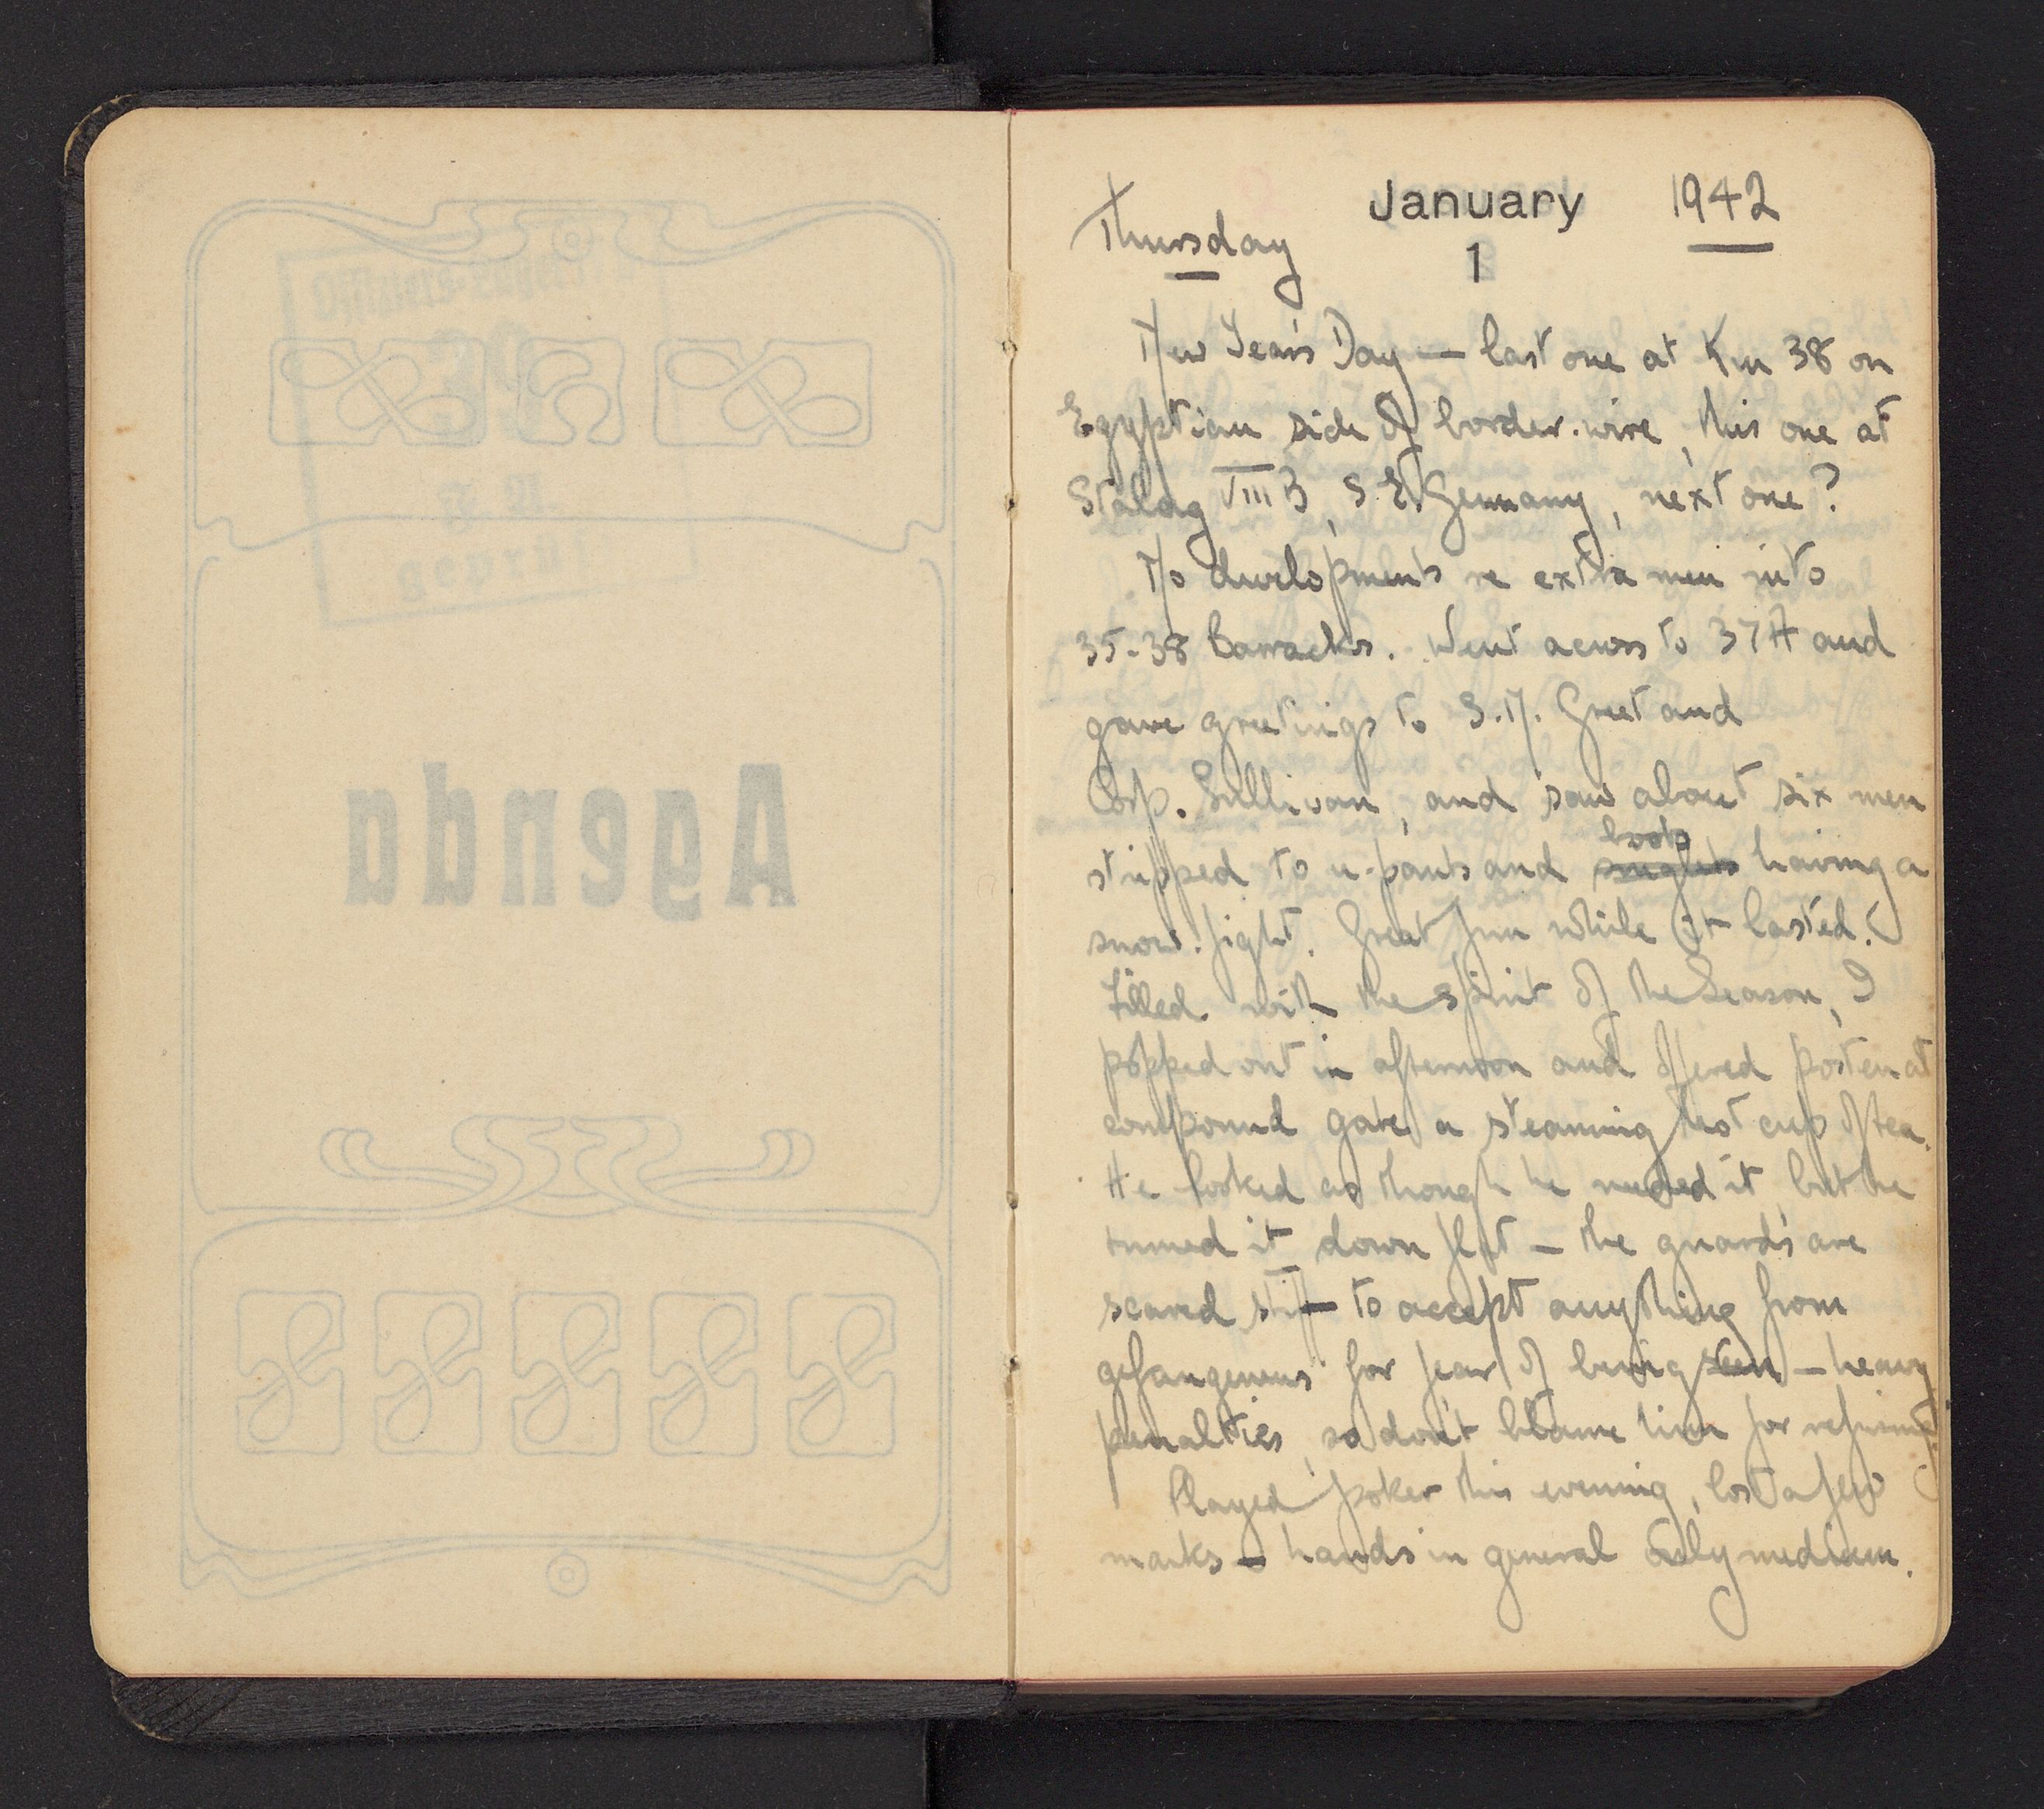 Agenda
January 1942
Thursday
1
New Year's Day — last one at Km 38 on
Egyptian side of border-wire, this one at
Stalag VIIIB, S.E. Germany, next one?
No developments re extra men into
35-38 Barracks. Went across to 37A and
gave greetings to S.M. Greet and
Corp. Sullivan, and saw about six men
boots
stripped to u-pants and singlets having a
snow-fight. Great fun while it lasted.
Filled with the spirit of the Season, I
popped out in afternoon and offered posten at
compound gate a steaming hot cup of tea.
He looked as though he needed it, but he
turned it down flat — the guards are
scared stiff to accept anything from
gefangeners for fear of being seen — heavy
penalties, so don't blame him for refusing.
Played poker this evening, lost a few
marks — hands in general only medium.